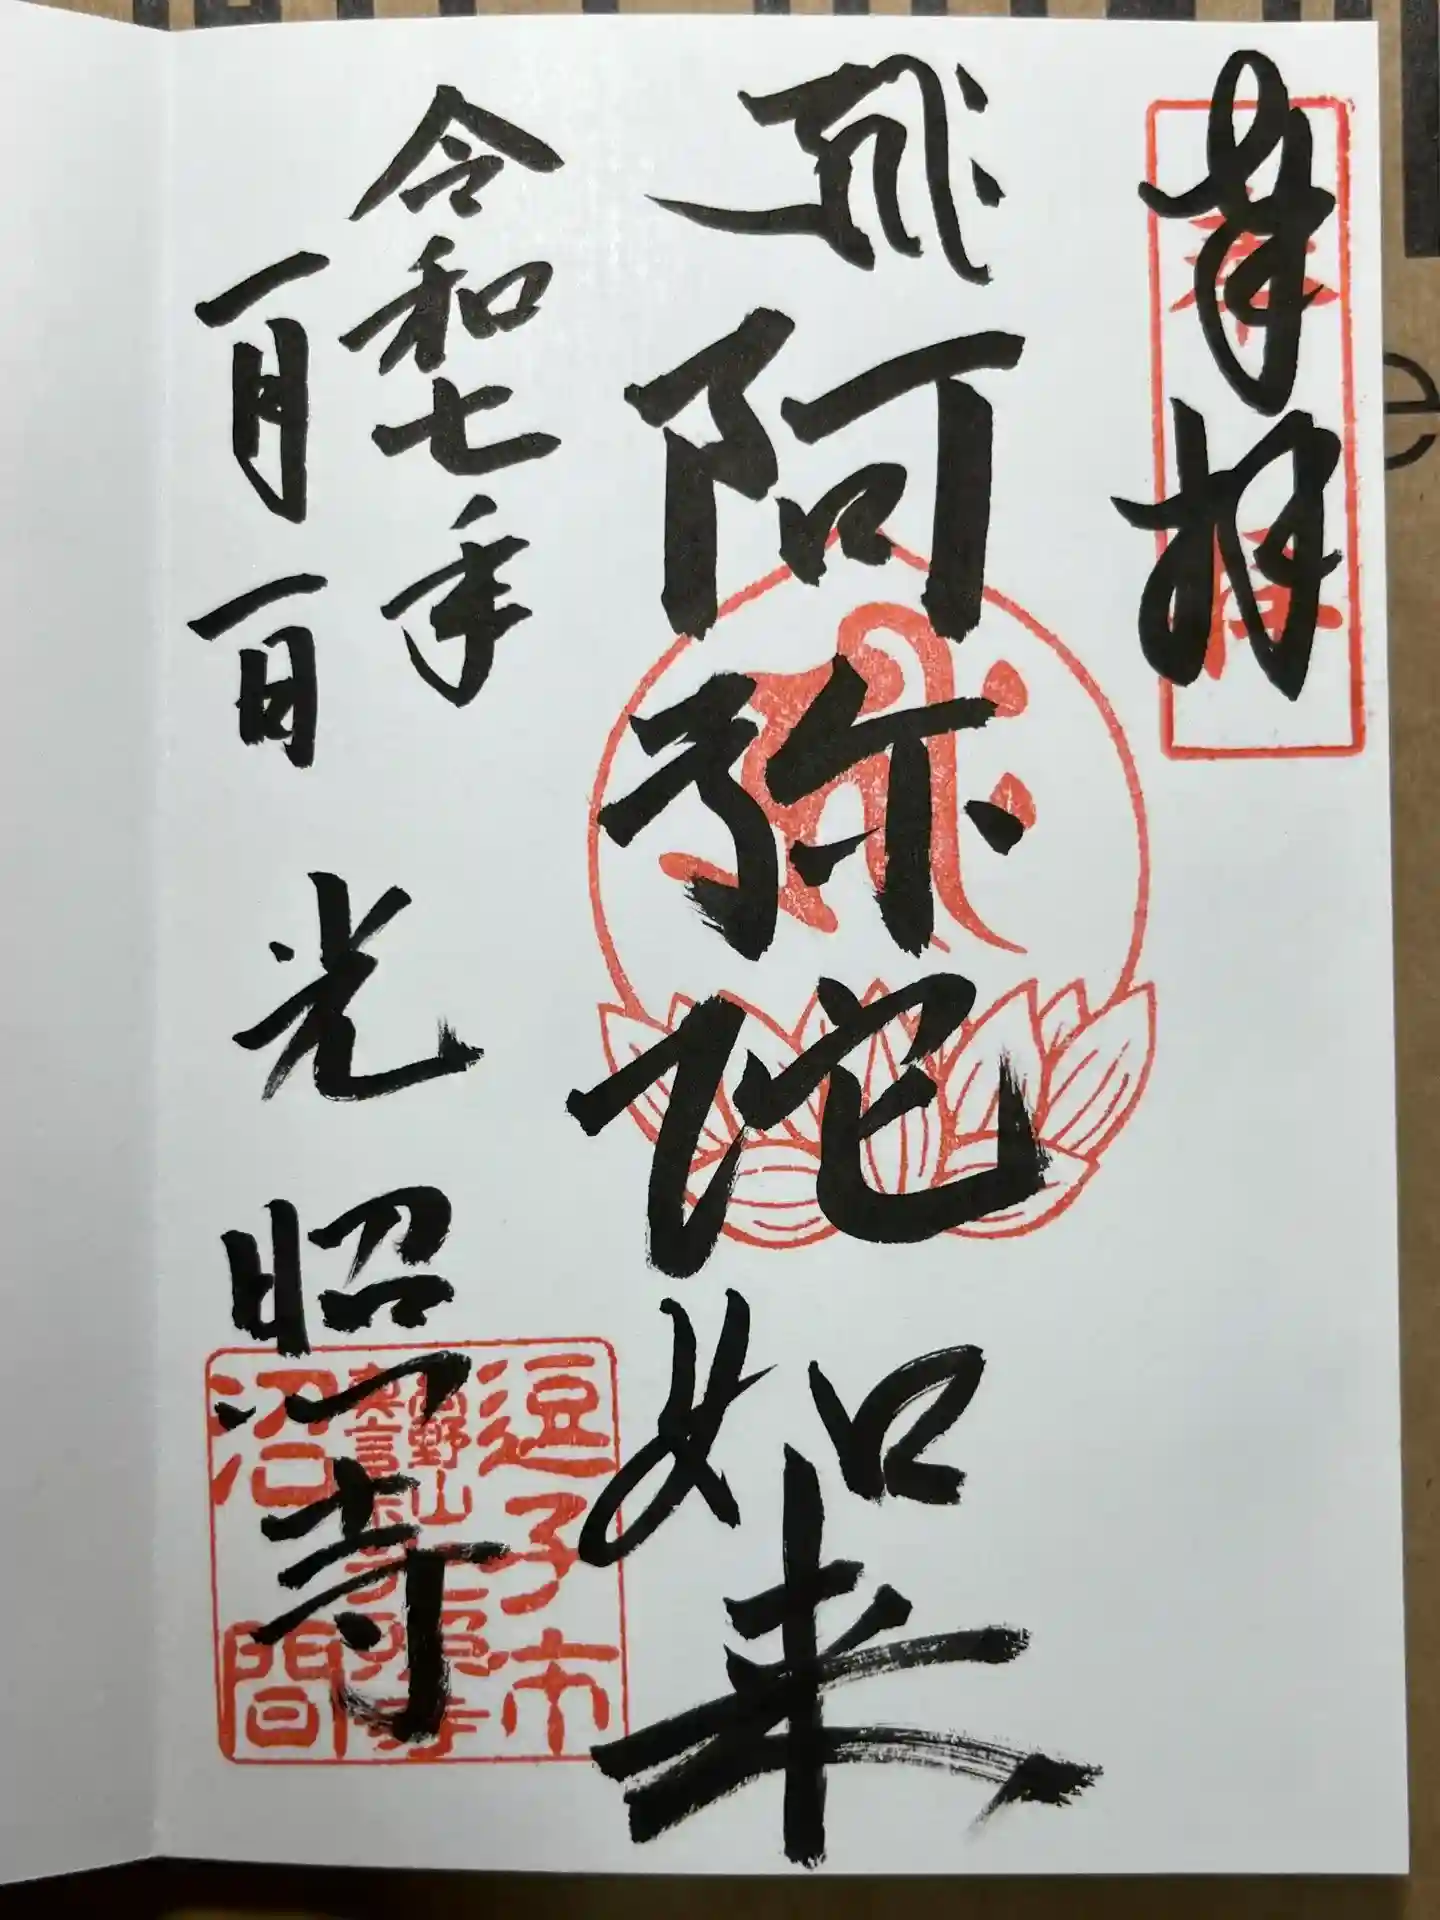 奉拝
奉拝
阿弥陀如来
令和七年
一月一日
光昭寺
逗子市
高野山
真言宗
光照寺
沼間